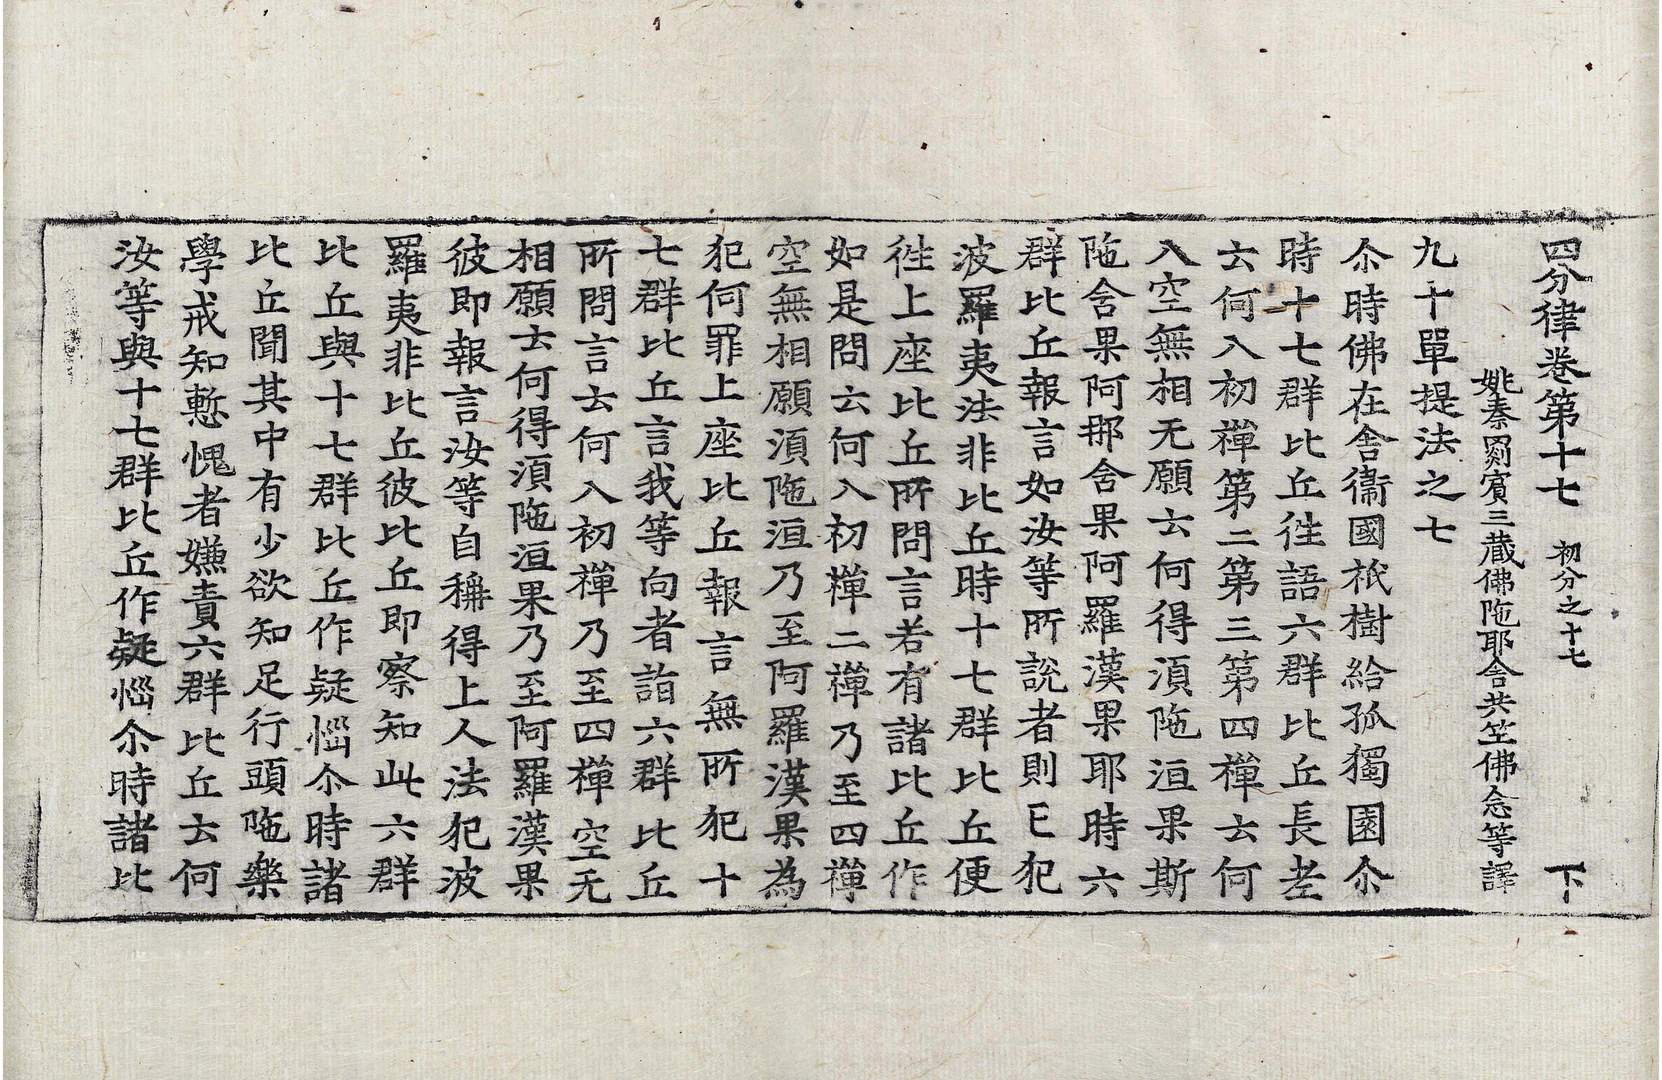 四分律卷第十七 初分之十七 下
姚秦罽賓三藏佛陁耶舍共竺佛念等譯
九十單提法之七
尒時佛在舍衞國祇樹給孤獨園尒
時十七群比丘徃語六群比丘長老
云何入初禪第二第三第四禪云何
入空無相无願云何得湏陁洹果斯
陁含果阿那含果阿羅漢果耶時六
群比丘報言如汝等所說者則已犯
波羅夷法非比丘時十七群比丘便
徃上座比丘所問言若有諸比丘作
如是問云何入初禪二禪乃至四禪
空無相願湏陁洹乃至阿羅漢果為
犯何罪上座比丘報言無所犯十
七群比丘言我等向者詣六群比丘
所問言云何入初禪乃至四禪空无
相願云何得湏陁洹果乃至阿羅漢果
彼即報言汝等自稱得上人法犯波
羅夷非比丘彼比丘即察知此六群
比丘與十七群比丘作疑惱尒時諸
比丘聞其中有少欲知足行頭陁樂
學戒知慙愧者嫌責六群比丘云何
汝等與十七群比丘作疑惱尒時諸比